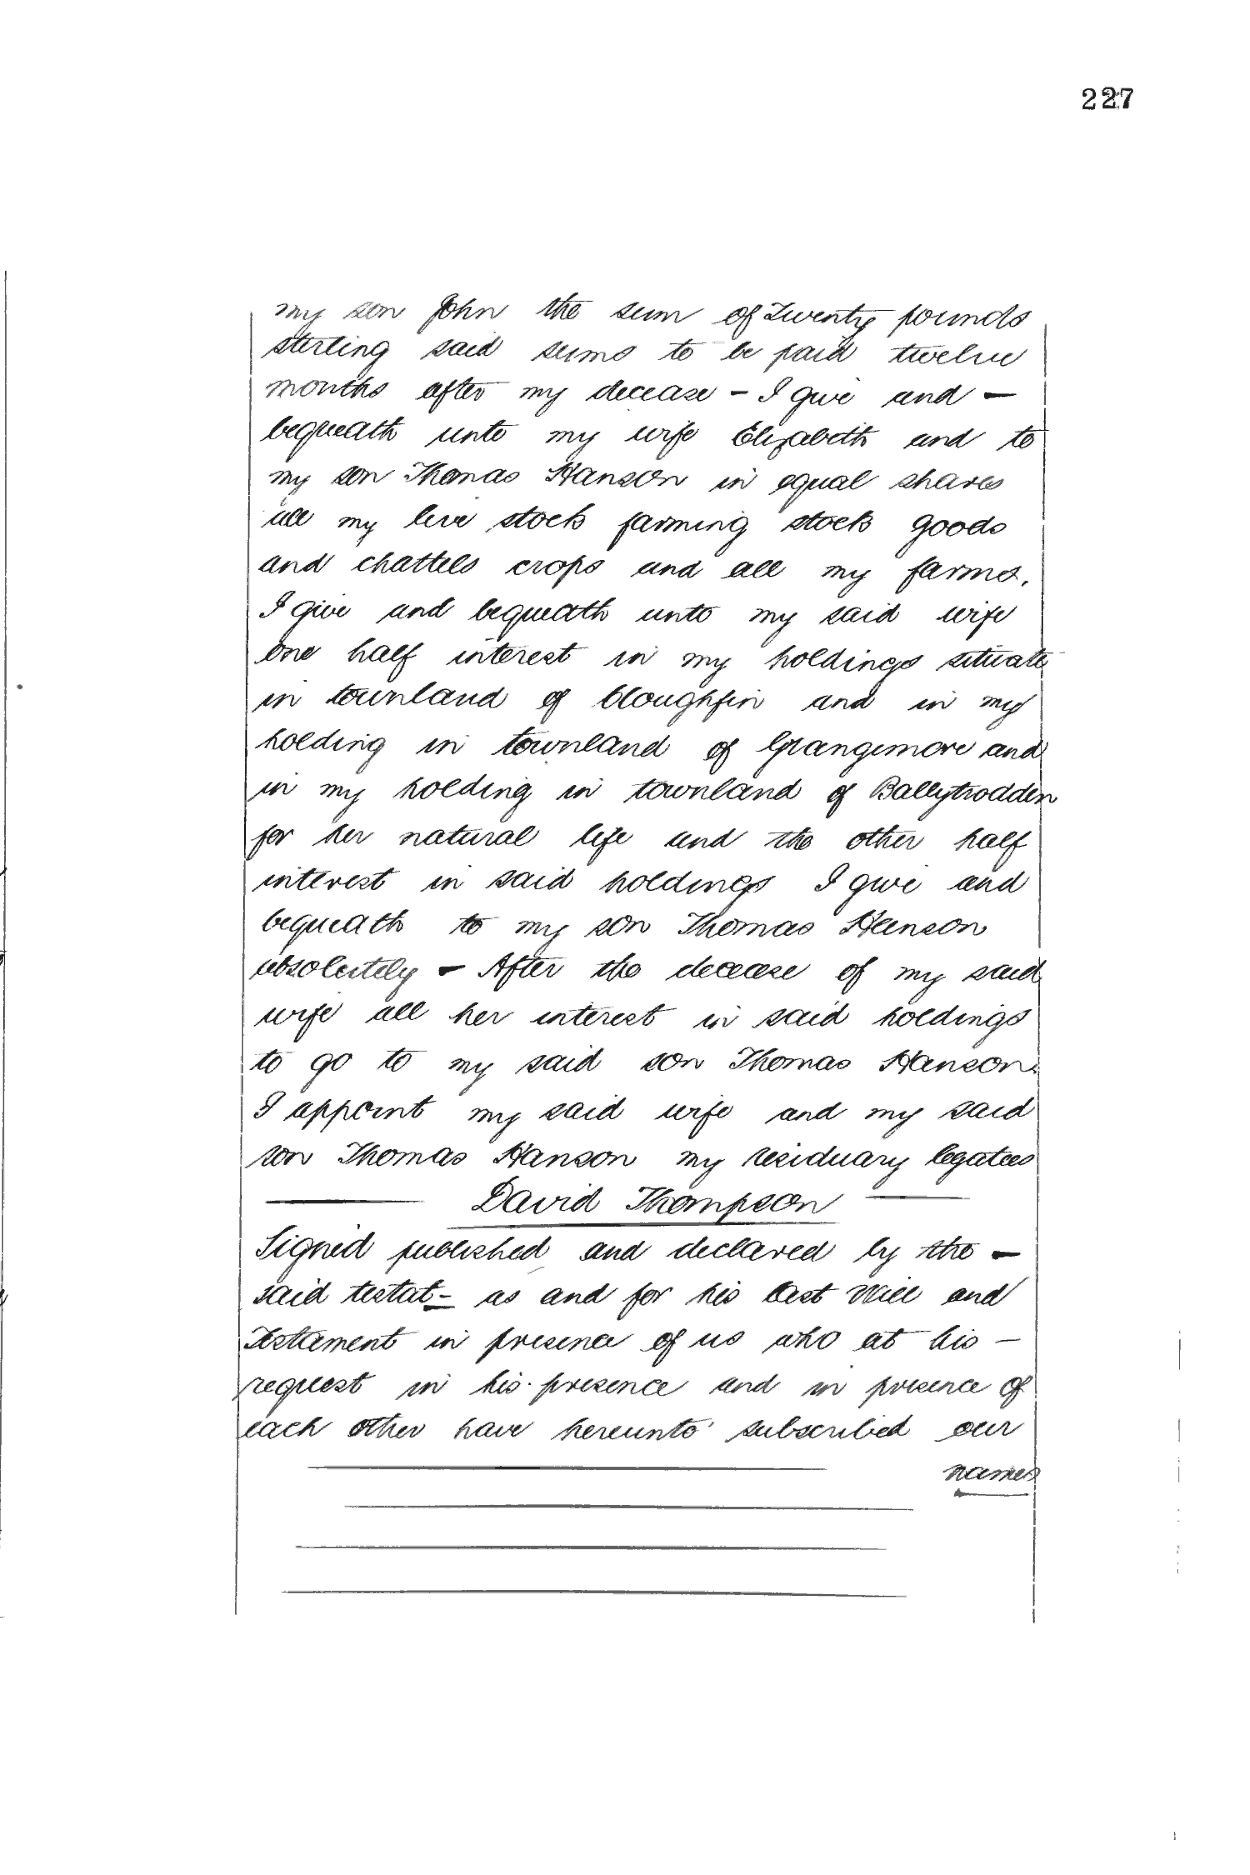 227
my son John the sum of Twenty pounds
sterling said sums to be paid twelve
months after my decease - I give and -
bequeath unto my wife Elizabeth and to
my son Thomas Hanson in equal shares
all my live stock farming stock goods
and chattels crops and all my farms.
I give and bequeath unto my said wife
one half interest in my holdings situate
in townland of Cloughfin and in my
holding in townland of Grangemore and
in my holding in townland of Ballytrodden
for her natural life and the other half
interest in said holdings I give and
bequeath to my son Thomas Hanson
absolutely - After the decease of my said
wife all her interest in said holdings
to go to my said son Thomas Hanson.
I appoint my said wife and my said
son Thomas Hanson my residuary legatees
David Thompson
Signed published and declared by the -
said testat- as and for his last Will and
Testament in presence of us who at his -
request in his presence and in presence of
each other have hereunto subscribed our
names